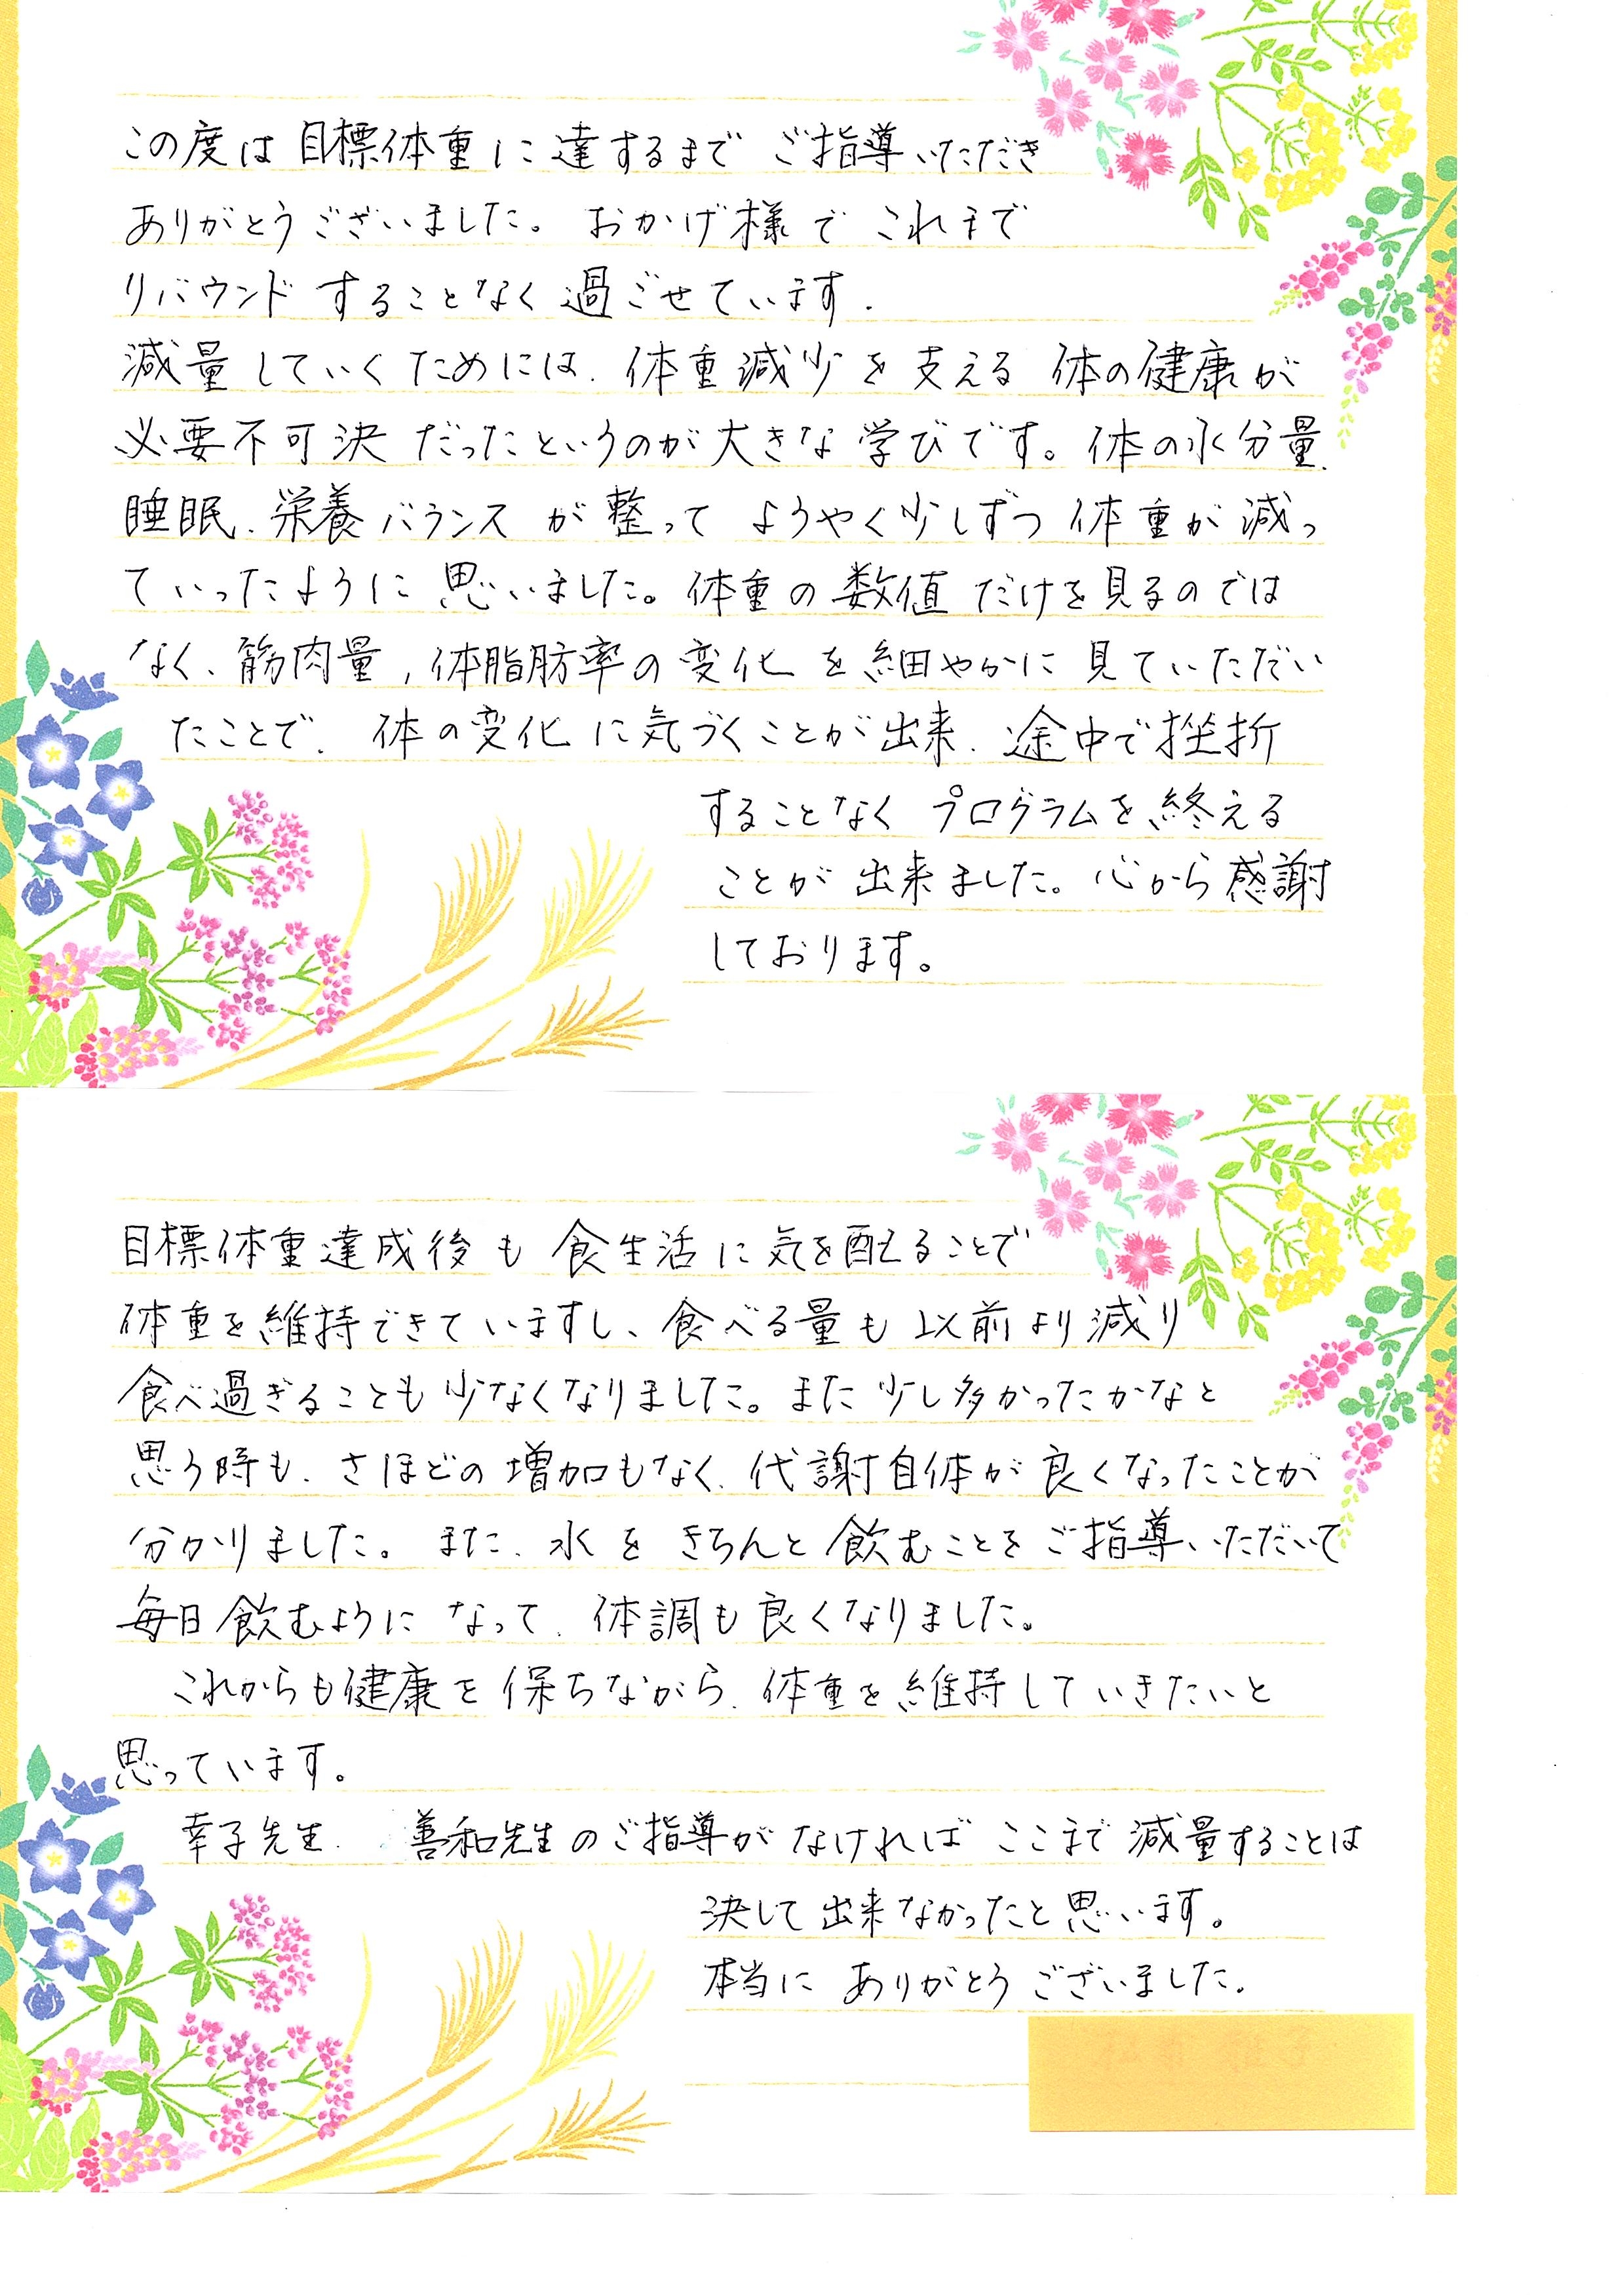 この度は目標体重に達するまでご指導いただき
ありがとうございました。おかげ様でこれまで
リバウンドすることなく過ごせています.
減量していくためには、体重減少を支える体の健康が
必要不可決だったというのが大きな学びです。体の水分量、
睡眠、栄養バランスが整ってようやく少しずつ体重が減っ
ていったように思いました。体重の数値だけを見るのでは
なく、筋肉量,体脂肪率の変化を細やかに見ていただい
たことで、体の変化に気づくことが出来、途中で挫折
することなくプログラムを終える
ことが出来ました。心から感謝
しております。
目標体重達成後も食生活に気を配せることで
体重を維持できていますし、食べる量も以前より減り
食べ過ぎることも少なくなりました。また少し多かったかなと
思う時も、さほどの増加もなく、代謝自体が良くなったことが
分かりました。また、水をきちんと飲むことをご指導いただいて
毎日飲むようになって、体調も良くなりました。
これからも健康を保ちながら、体重を維持していきたいと
思っています。
幸子先生、善和先生のご指導がなければここまで減量することは
決して出来なかったと思います。
本当にありがとうございました.